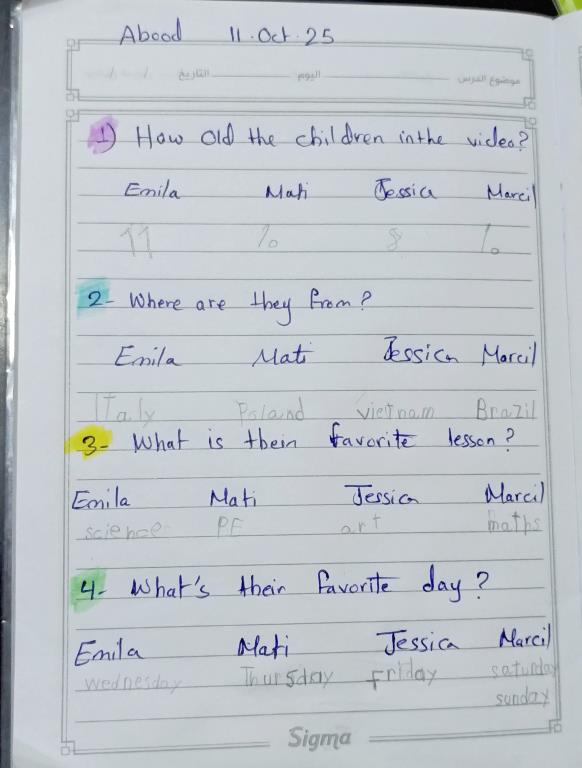 Abood 11.Oct.25
موضوع الدرس اليوم التاريخ / /
1) How old the children in the video?
Emila Mati Jessica Marcil
11 10 8 10
2- Where are they from?
Emila Mati Jessica Marcil
Italy Poland vietnam Brazil
3- What is their favorite lesson?
Emila Mati Jessica Marcil
science PE art maths
4- What's their favorite day?
Emila Mati Jessica Marcil
wednesday Thursday friday saturday
sunday
Sigma